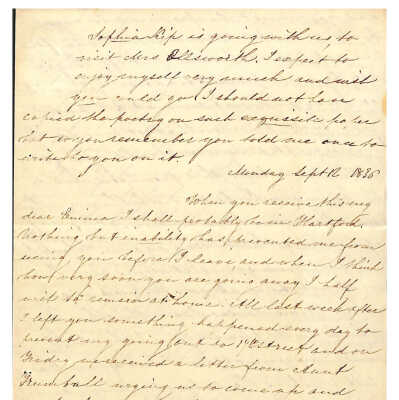 Sophia Kip is going with us, to
visit Mrs Ellsworth. I expect to
enjoy myself very much and wish
you could go I should not have
copied the poetry on such exquisite paper
but do you remember you told me once to
write to you on it.
Monday Sept 12 1836
When you receive this my
dear Emma I shall probably be in Hartford.
Nothing but inability has prevented me from
seeing you before I leave and when I think
how very soon you are going away I half
wish to remain at home. All last week after
I left you something happened every day to
prevent my going out to 1st Street and on
Friday we received a letter from Aunt
Trumbull urging us to come up and